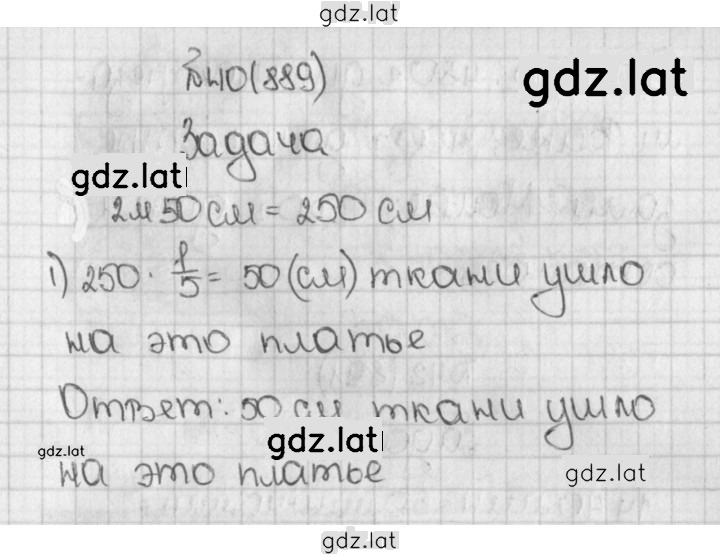 gdz.lat
№410(889)
gdz.lat
Задача
gdz.lat
2м 50 см = 250 см
1) 250 · 1/5 = 50 (см) ткани ушло
на это платье
Ответ: 50 см ткани ушло
gdz.lat
gdz.lat
на это платье
gdz.lat
gdz.lat